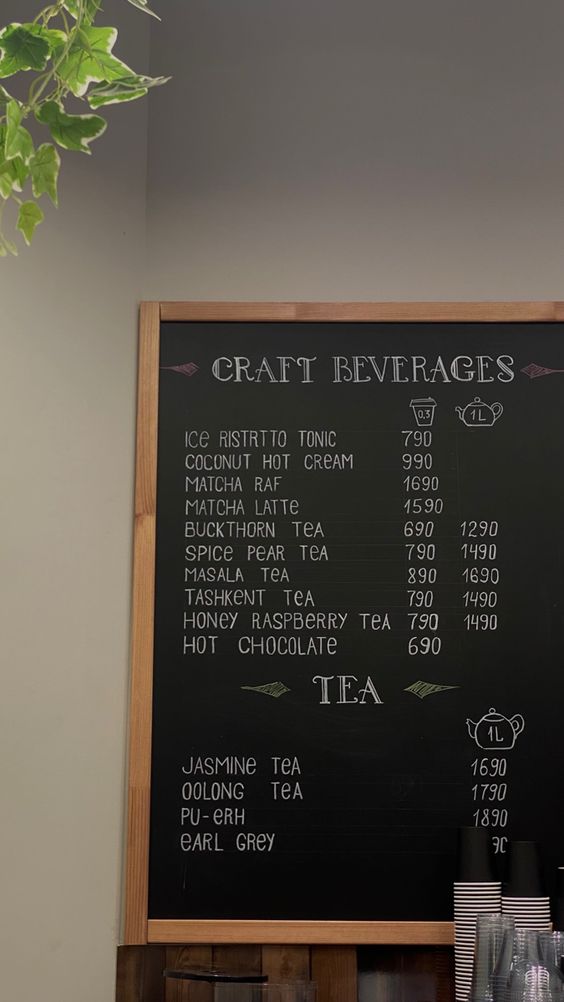 CRAFT BEVERAGES
0,3 1L
ICE RISTRTTO TONIC 790
COCONUT HOT CREAM 990
MATCHA RAF 1690
MATCHA LATTE 1590
BUCKTHORN TEA 690 1290
SPICE PEAR TEA 790 1490
MASALA TEA 890 1690
TASHKENT TEA 790 1490
HONEY RASPBERRY TEA 790 1490
HOT CHOCOLATE 690
TEA
1L
JASMINE TEA 1690
OOLONG TEA 1790
PU-ERH 1890
EARL GREY